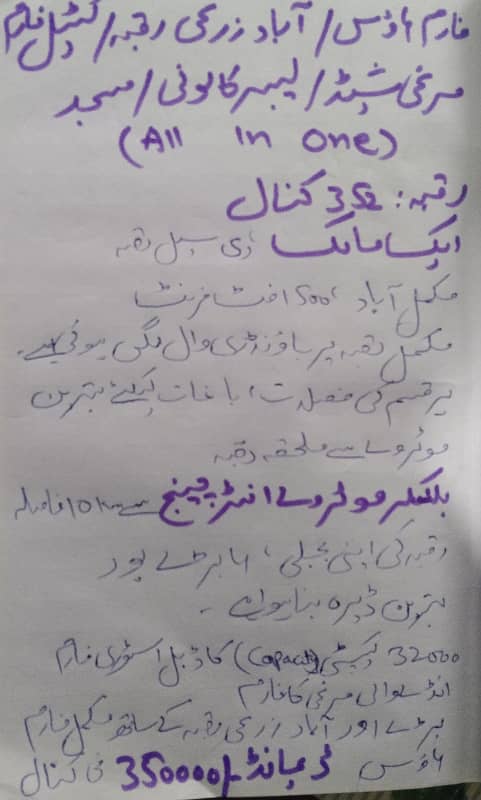 فارم ہاؤس/آباد زرعی رقبہ/کیٹل فارم
مرغی شیڈ/لیبر کالونی/مسجد
(All In One)
رقبہ: 352 کنال
ایک مالک، ڈی سیل رقبہ
مکمل آباد، 1500 فٹ فرنٹ
مکمل رقبہ پر باؤنڈری وال لگی ہوئی ہے۔
ہر قسم کی فصلات، باغات کیلئے بہترین
موٹروے سے ملحقہ رقبہ
بلکسر موٹروے انٹرچینج سے 10km فاصلہ
رقبہ کی اپنی بجلی، 4 بڑے بور
بہترین ڈیرہ بنا ہوا ہے۔
32000 کپیسٹی (Capacity) کا ڈبل اسٹوری فارم
انڈے والی مرغی کا فارم
بڑے اور آباد زرعی رقبہ کے ساتھ مکمل فارم
ہاؤس ڈیمانڈ 350000/- فی کنال